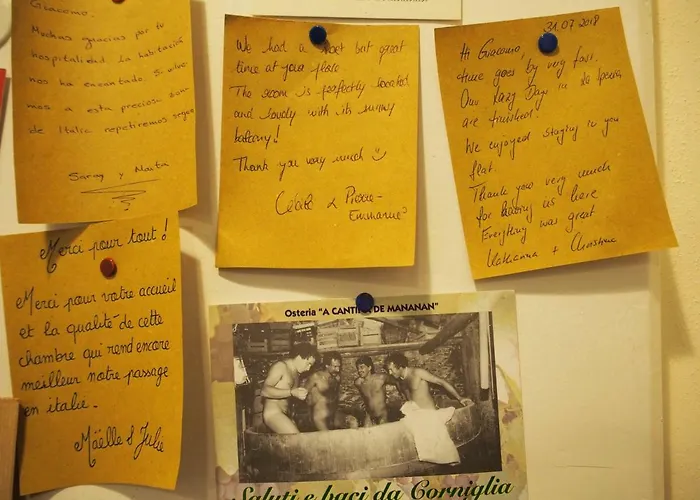 Giacomo.
Muchas gracias por tu
hospitalidad. La habitación
nos ha encantado. Si volve-
mos a esta preciosa zona
de Italia repetiremos seguro
Saray y Marta
Merci pour tout!
Merci pour votre accueil
et la qualité de cette
chambre qui rend encore
meilleur notre passage
en italie.
Maëlle & Julie
We had a short but great
time at your place.
The room is perfectly located
and lovely with its sunny
balcony!
Thank you very much
& Pierre-
Emmanuel
31.07 2018
Hi Giacomo,
time goes by very fast.
Our Lazy Days in La Spezia
are finished!
We enjoyed staying in your
flat.
Thank you very much
for having us here
Everything was great
Katharina + Christina
Osteria "A CANTINA DE MANANAN"
Saluti e baci da Corniglia